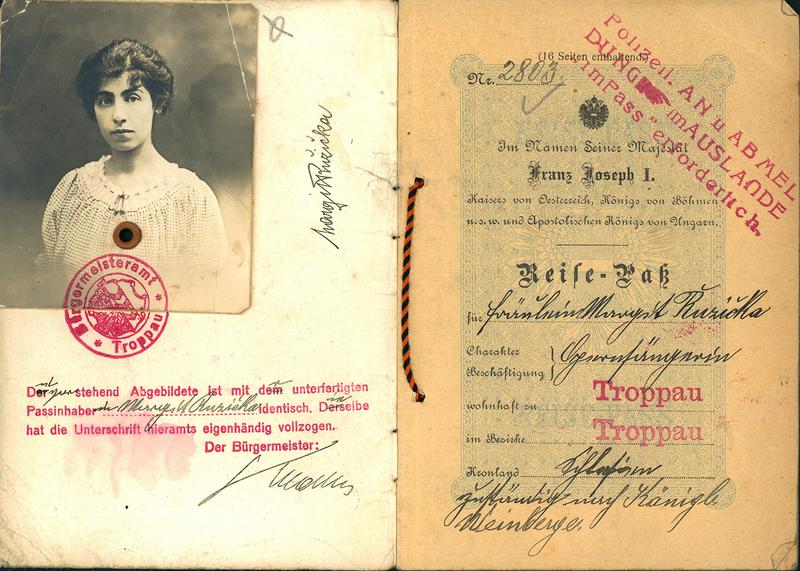 Margit Růžička
Bürgermeisteramt
* Troppau *
stehend Abgebildete ist mit unterfertigten
Passinhaber Margit Ruzicka identisch.
hat die Unterschrift hieramts eigenhändig vollzogen.
Der Bürgermeister:
(16 Seiten enthaltend.)
Nr. 2803.
Polizeil. AN u ABMEL
DUNG im AUSLANDE
"im Pass" erforderlich.
Im Namen Seiner Majestät
Franz Joseph I.
Kaisers von Oesterreich, Königs von Böhmen
u. s. w. und Apostolischen Königs von Ungarn.
Reise-Paß
für Fräulein Margit Ruzicka
Charakter
Beschäftigung } Opernsängerin
wohnhaft zu Troppau
im Bezirke Troppau
Kronland Schlesien
zuständig nach Königl.
Weinberge.